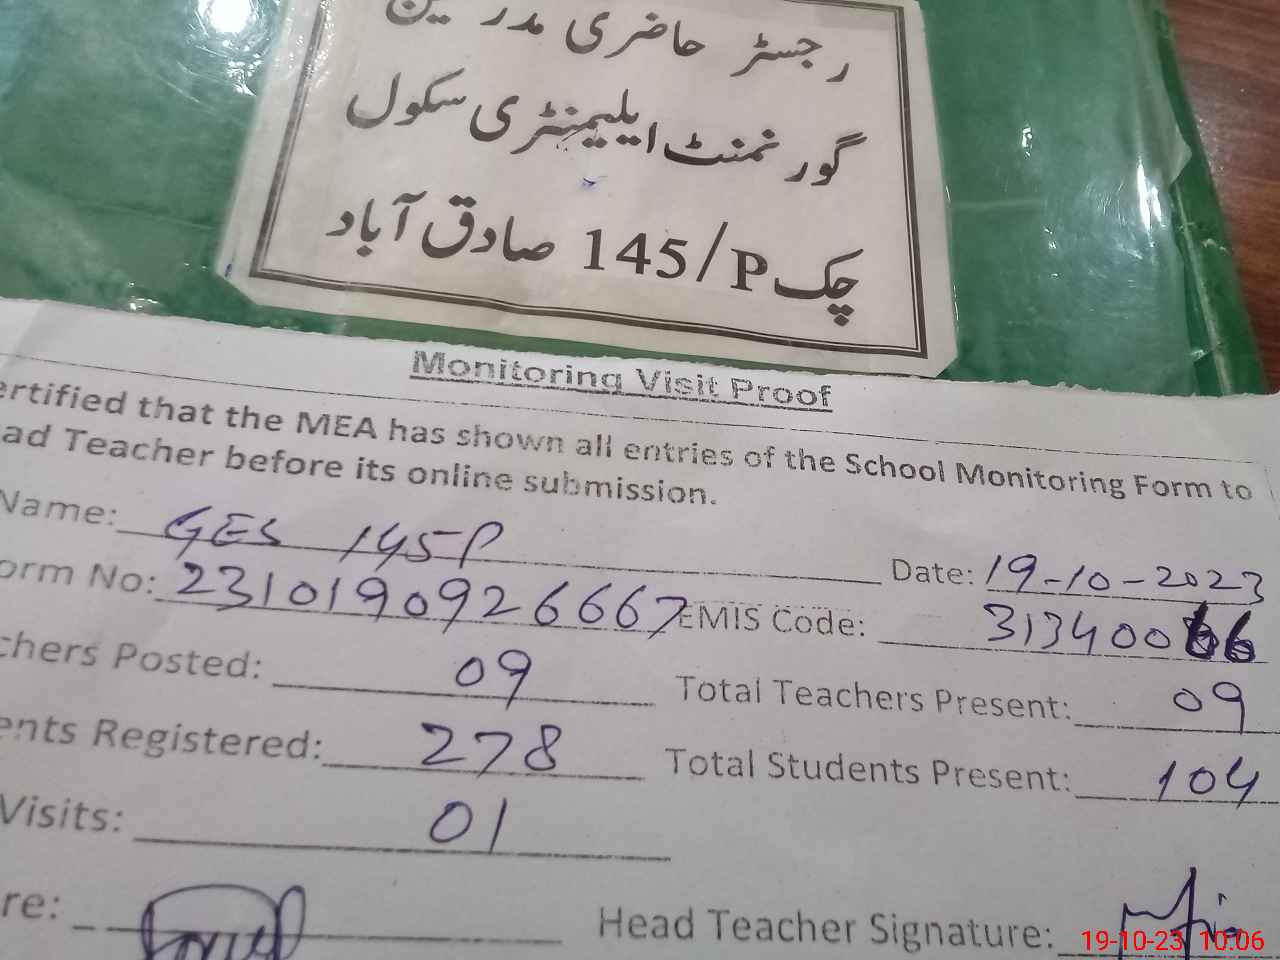 رجسٹر حاضری مدرسین
گورنمنٹ ایلیمنٹری سکول
چک 145/P صادق آباد
Monitoring Visit Proof
ertified that the MEA has shown all entries of the School Monitoring Form to
ad Teacher before its online submission.
Name: GES 145P Date: 19-10-2023
orm No: 2310190926667 EMIS Code: 31340066
chers Posted: 09 Total Teachers Present: 09
ents Registered: 278 Total Students Present: 104
Visits: 01
re: Head Teacher Signature:
19-10-23 10:06